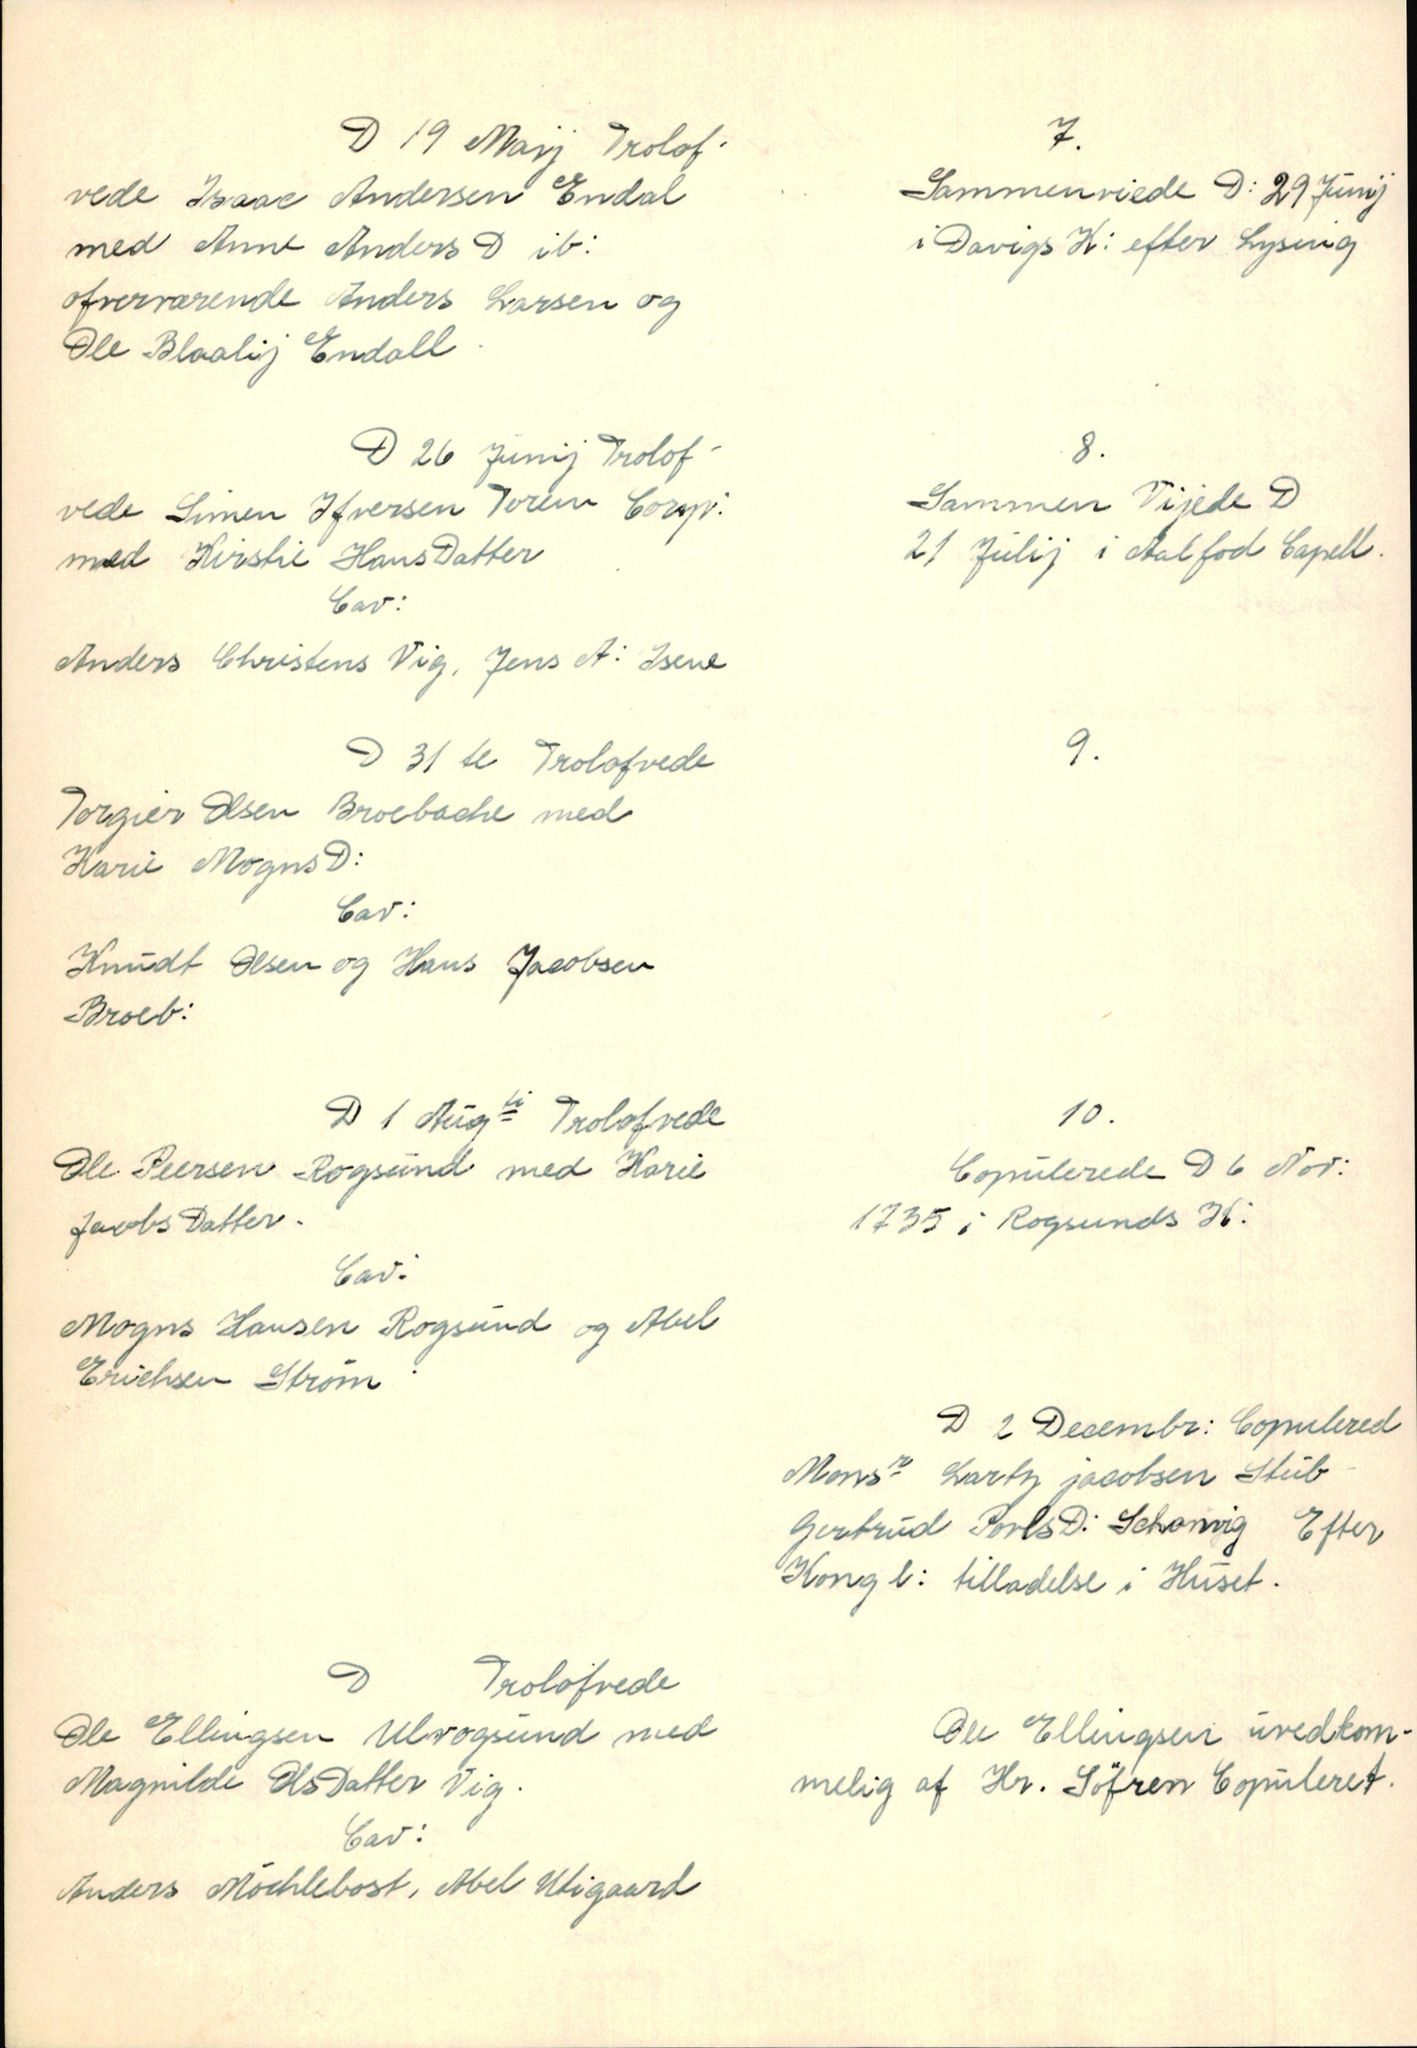 D 19 Maij Trolof-
vede Isaac Andersen Endal
med Anne Anders D ib:
ofverværende Anders Larsen og
Ole Blaalij Endall.
7.
Sammenviede D: 29 Junij
i Davigs K: efter Lysnig
D 26 Junij Trolof-
vede Simen Ifversen Toren Corp:
med Kirstie HansDatter
Cav:
Anders Christens Vig, Jens A: Isene
8.
Sammen Vijede D
21 Julij i Aalfod Capell.
D 31 te Trolofvede
Torgier Olsen Broebache med
Karie MognsD:
Cav:
Knudt Olsen og Hans Jacobsen
Broeb:
9.
D 1 Augti Trolofvede
Ole Peersen Rogsund med Karie
JacobsDatter.
Cav:
Mogns Hansen Rogsund og Abel
Erichsen Strøm
10.
Copulerede D 6 Nov:
1735 i Rogsunds K:
D 2 Decembr: Copulered
Monsr Lartz jacobsen Stub
Gertrud PovlsD: Schavvig Efter
Kongl: tilladelse i Huset.
D Trolofvede
Ole Ellingsen Ulvogsund med
Magnilde OlsDatter Vig.
Cav:
Anders Möchlebost, Abel Utigaard
Ole Ellingsen uvedkom-
melig af Hr. Söfren Copuleret.